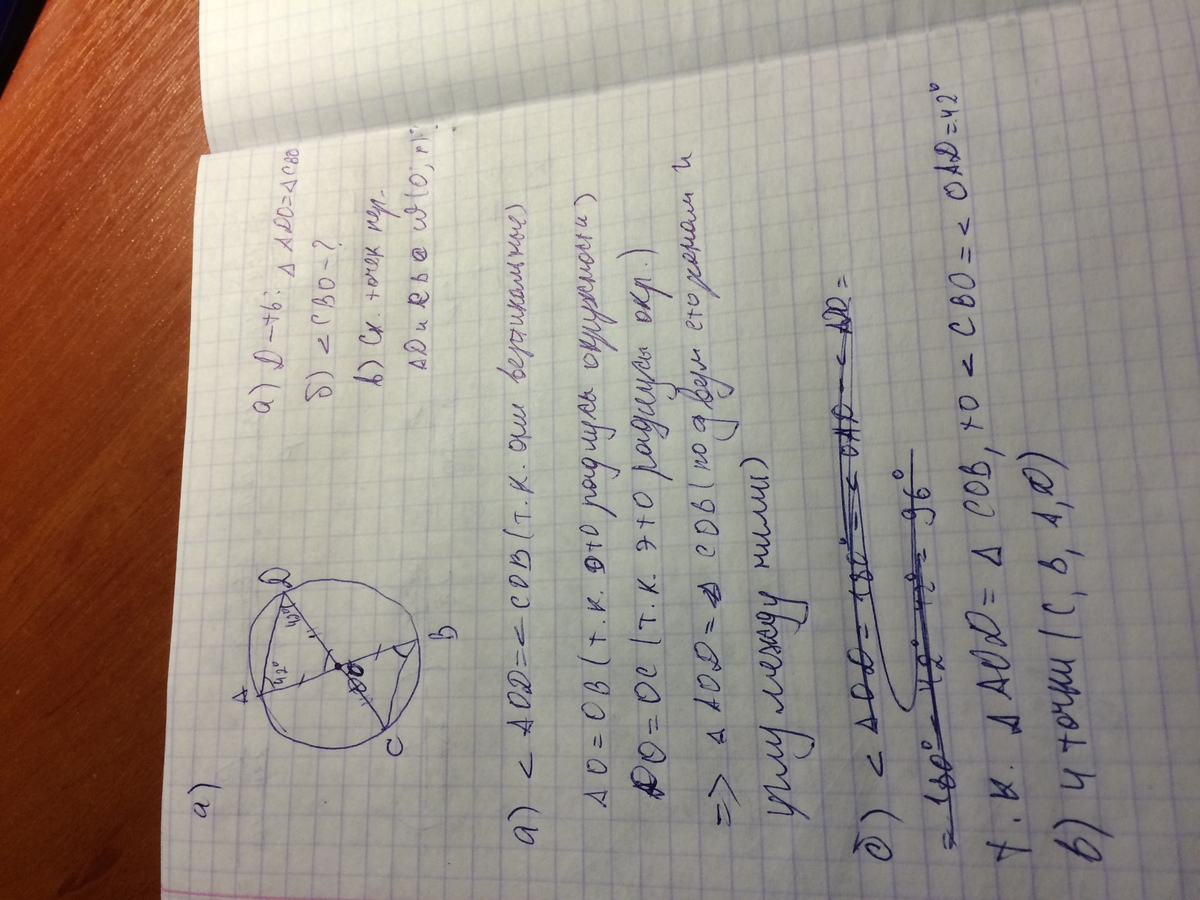 а)
A
D
42°
42°
O
C
B
а) D-ть: Δ ADO=Δ CBO
б) < CBO - ?
в) Ск. точек пер.
AD и
а) < AOD = < COB (т.к. они вертикальные)
AO = OB (т.к. это радиусы окружности)
DO = OC (т.к. это радиусы окр.)
=> Δ AOD = Δ COB (по двум сторонам и
углу между ними)
б) < AOD = 180° - < OAD - < ADO =
= 180° - 42° - 42° = 96°
т.к. Δ AOD = Δ COB, то < CBO = < OAD = 42°
в) 4 точки (C, B, A, D)